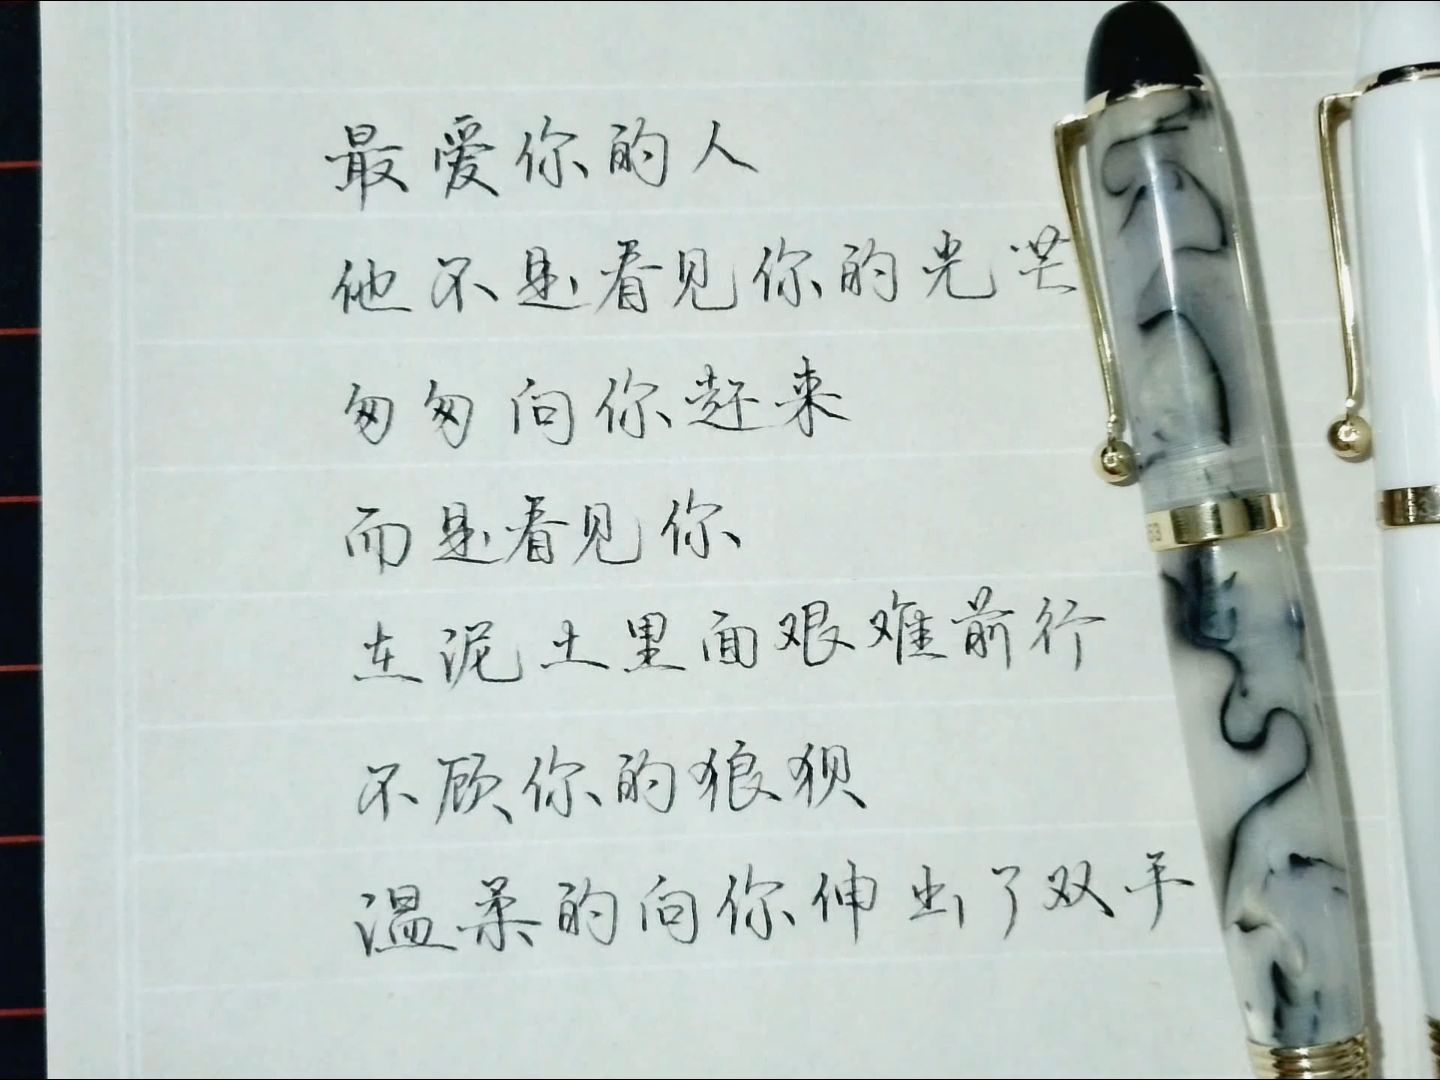 最爱你的人
他不是看见你的光芒
匆匆向你赶来
而是看见你
在泥土里面艰难前行
不顾你的狼狈
温柔的向你伸出了双手